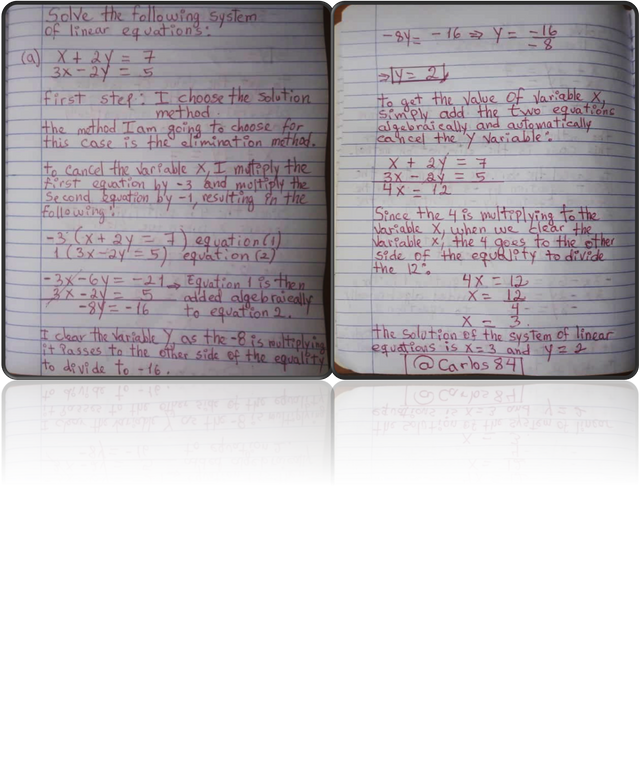 Solve the following system
of linear equations:
(a) x + 2y = 7
3x - 2y = 5
first step: I choose the solution
method
the method I am going to choose for
this case is the elimination method.
to cancel the variable x, I multiply the
first equation by -3 and multiply the
second equation by -1, resulting in the
following:
-3 (x + 2y = 7) equation (1)
1 (3x - 2y = 5) equation (2)
-3x - 6y = -21 → Equation 1 is then
3x - 2y = 5 added algebraically
-8y = -16 to equation 2.
I clear the variable Y, as the -8 is multiplying
it passes to the other side of the equality
to divide to -16.
-8y = -16 ⇒ y = -16
-8
⇒ y = 2
to get the value of variable x,
simply add the two equations
algebraically and automatically
cancel the Y variable:
x + 2y = 7
3x - 2y = 5
4x = 12
Since the 4 is multiplying to the
variable x, when we clear the
variable x, the 4 goes to the other
side of the equality to divide
the 12:
4x = 12
x = 12
4
x = 3
the solution of the system of linear
equations is x = 3 and y = 2
@Carlos84